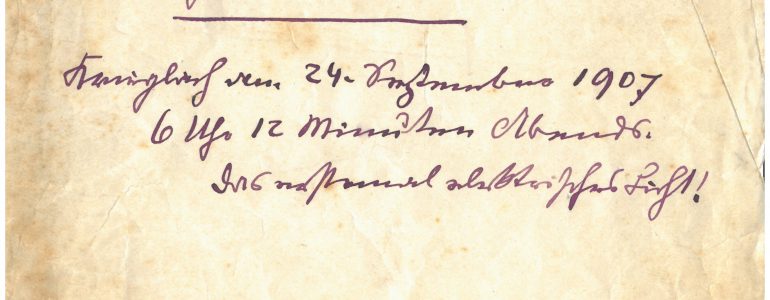 Krieglach am 24. September 1907
6 Uhr 12 Minuten Abends.
das erstemal elektrisches Licht!